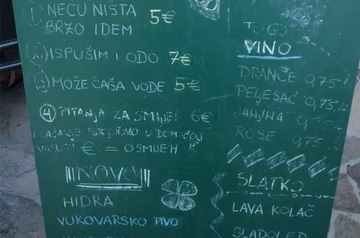 1 NEĆU NIŠTA
BRZO IDEM 5€
2 ISPUŠIM I ODO 7€
3 MOŽE ČAŠA VODE 5€
4 PITANJA ZA SMIJEH 6€
€ = OSMIJEH
NOVO
HIDRA
VUKOVARSKO PIVO
TOGO
VINO
DRANČE 0,75
PELJEŠAC 0,75
JANJINA 0,75
ROSE 0,75
SLATKO
LAVA KOLAČ
SLADOLED